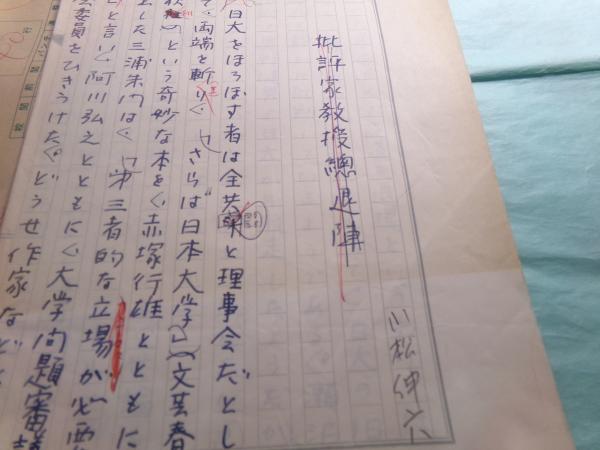 批評家教授總退陣
小松伸六
日大をほろぼす者は全共闘と理事会だとし
て、両端を斬りく「さらば日本大学」（文芸春
秋社）という奇妙な本をく赤塚行雄とともに
した三浦朱門はく「第三者的な立場が必要
と言いく阿川弘之とともにく大学問題審議
委員をひきうけたくどうせ作家などと